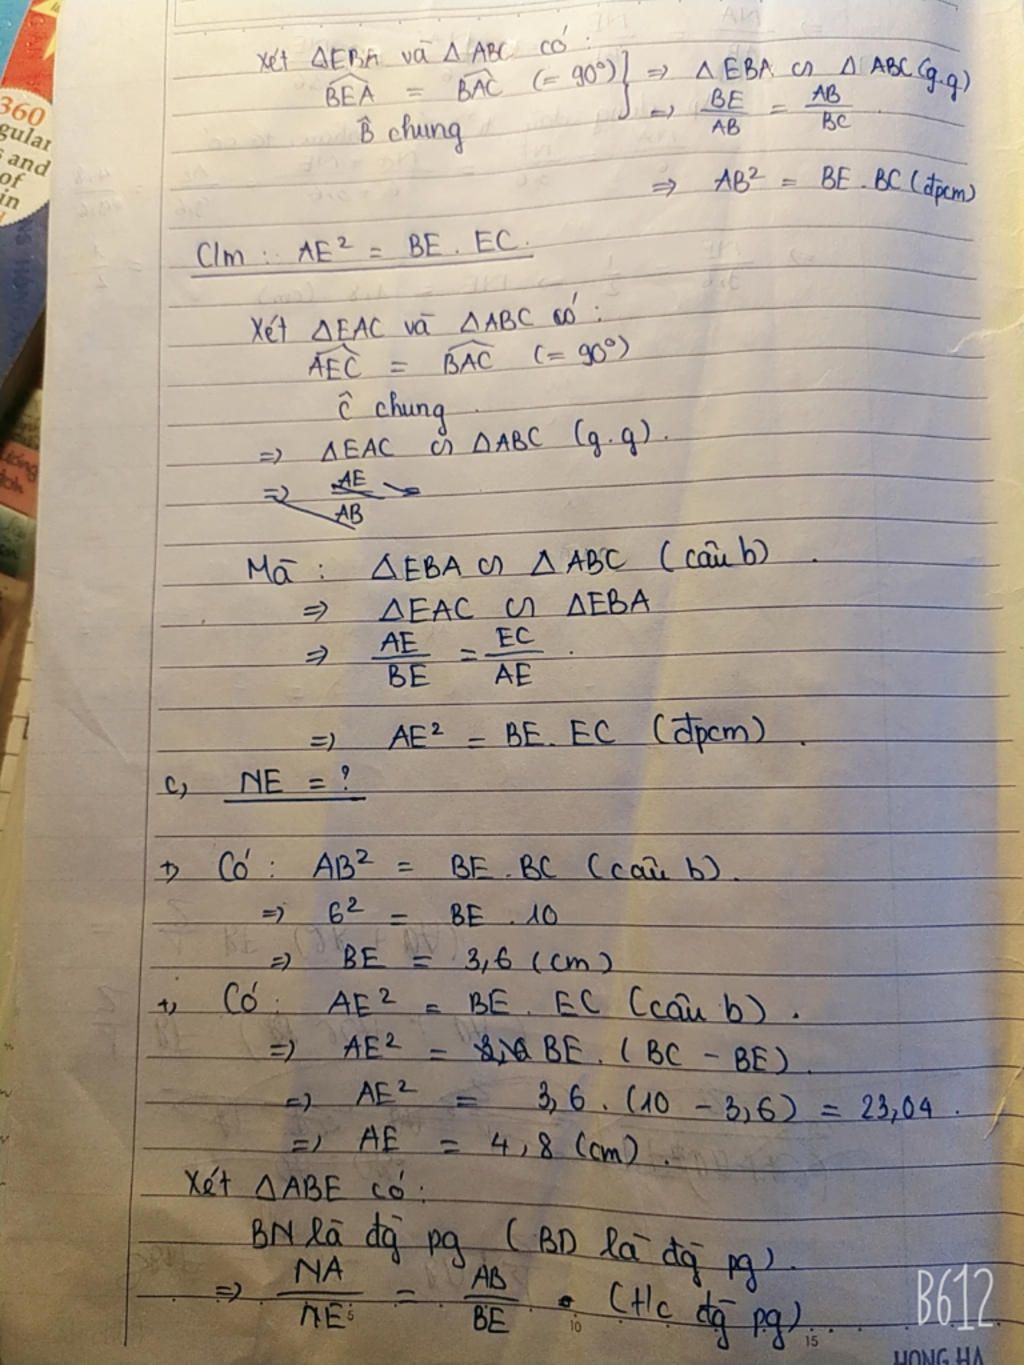 360
gular
s and
of
in
Xét ΔEBA và Δ ABC có:
BEA = BAC (= 90°) } => Δ EBA ∽ Δ ABC (g.g)
B̂ chung => BE/AB = AB/BC
=> AB² = BE . BC (đpcm)
C/m : AE² = BE . EC.
Xét ΔEAC và ΔABC có :
AEC = BAC (= 90°)
Ĉ chung
=> ΔEAC ∽ ΔABC (g.g).
=> AE/AB
Mà : ΔEBA ∽ ΔABC (câu b).
=> ΔEAC ∽ ΔEBA
=> AE/BE = EC/AE.
=> AE² = BE. EC (đpcm).
c, NE = ?
+, Có : AB² = BE . BC (câu b).
=> 6² = BE . 10
=> BE = 3,6 (cm)
+, Có : AE² = BE . EC (câu b).
=> AE² = BE . (BC - BE).
=> AE² = 3,6 . (10 - 3,6) = 23,04.
=> AE = 4,8 (cm).
Xét ΔABE có:
BN là đg pg (BD là đg pg).
=> NA/NE = AB/BE (t/c đg pg)
5 10 15
B612
HONG HA